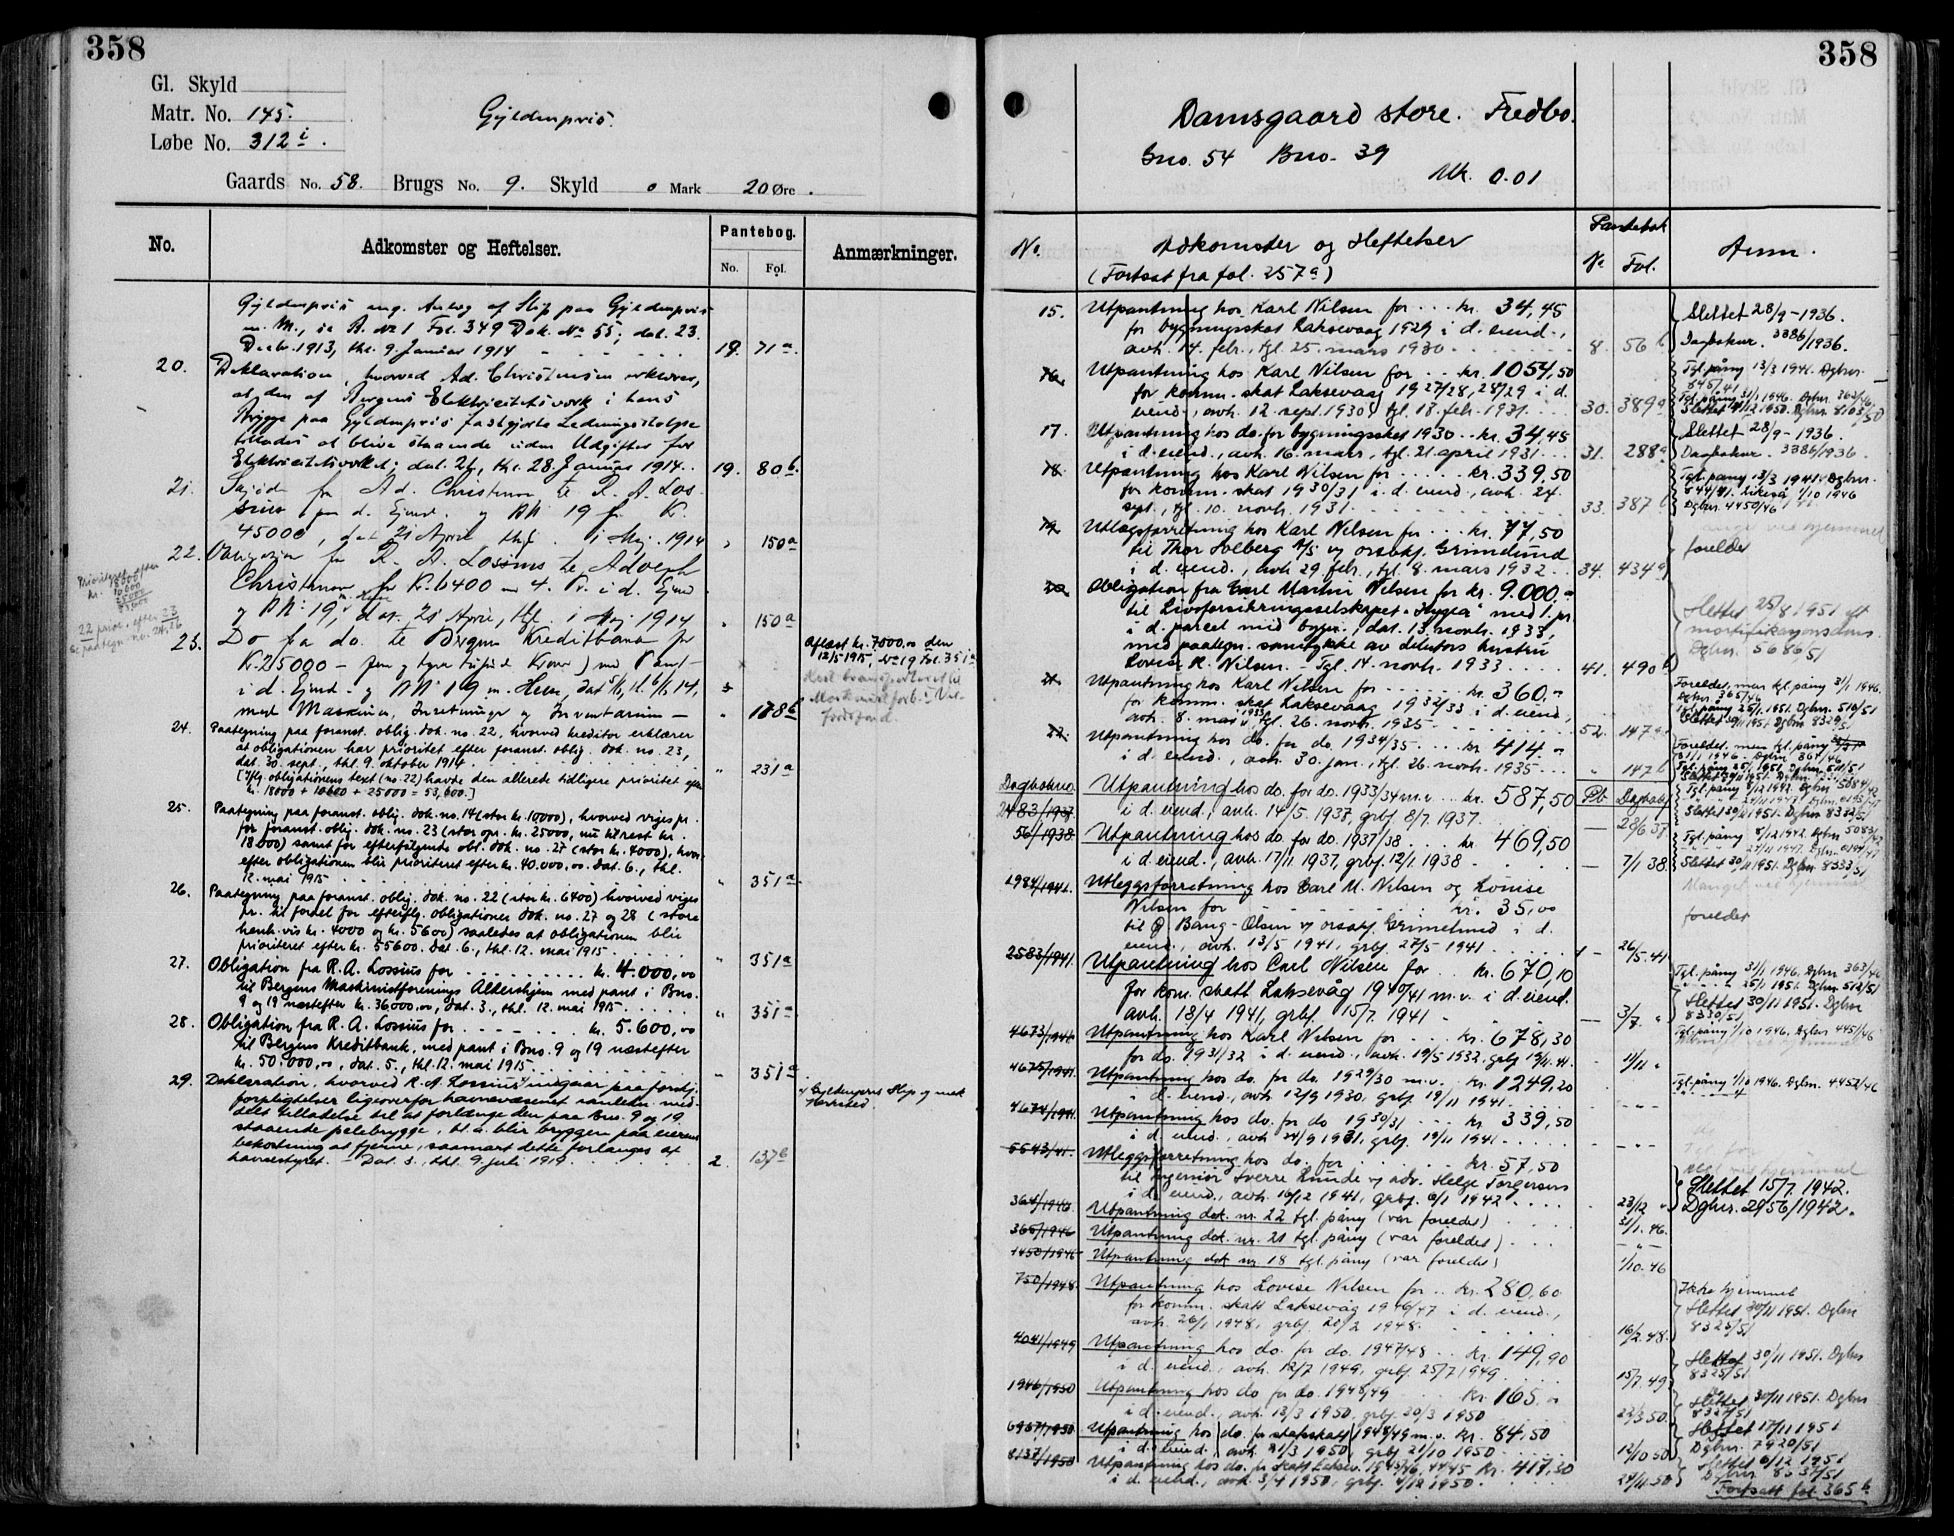 358
Gl. Skyld
Matr. No. 145.
Løbe No. 312 i.
Gyldenpris.
Gaards No. 58. Brugs No. 9. Skyld 0 Mark 20 Øre.
No. Adkomster og Heftelser. Pantebog. No. Fol. Anmærkninger.
Gyldenpris ang. Anlæg af Slip paa Gyldenpris
m. M., se A. No 1 Fol. 349 Dok. No 55; dat. 23.
Decbr. 1913, thl. 9 Januar 1914 19. 71a
20. Deklaration, hvorved Ad. Christensen erklærer,
at den af Bergens Elektricitetsverk i hans
Brygge paa Gyldenpris fastgjorte Ledningsstolpe
tillades at blive staaende uden Udgifter for
Elektricitetsverket; dat. 24, thl. 28. Januar 1914. 19. 80b
21. Skjøde fra Ad. Christensen til R. A. Los-
sius paa d. Eiend. og BN 19 for Kr.
45000, dat 21 April thl. 1 Maj 1914 " 150a
22. Obligation fra R. A. Lossius til Adolph
Christensen for Kr. 6400 m 4. Pr. i d. Eiend
og BN 19, dat. 21 April, thl. 1 Maj 1914 " 150a
Prioriteret efter
kr. 18000
10600
25000
53600
22 prior. efter 23
se paategn. no. 24. 26
23. Do fra do. til Bergens Kreditbank for
Kr. 25000 – fem og tyve tusinde Kroner) med Pant
i d. Eiend. og BN 19 m. Heru, dat 5/6, thl. 6/6 14,
med Maskiner, Inretninger og Inventarium – " 188b
Aflæst kr. 7000.00 den
12/5 1915, No 19 Fol. 351a
24. Paategning paa foranst. oblig. dok. no. 22, hvorved kreditor erklærer
at obligationen har prioritet efter foranst. oblig. dok. no. 23,
dat. 30. sept., thl. 9. oktober 1914 " 231a
[Iflg. obligationens text (no. 22) havde den allerede tidligere prioritet efter
kr. 18000 + 10600 + 25000 = 53,600.]
25. Paategning paa foranst. oblig. dok. no. 14 (stor kr. 10000), hvorved viges pr.
for foranst. oblig. dok. no. 23 (stor opr. kr. 25000, nu til rest kr.
18.000) samt for efterfølgende obl. dok. no. 27 (stor kr. 4000), hvor-
efter obligationen blir prioriteret efter kr. 40.000.00. Dat. 6., thl.
12. mai 1915 " 351a
26. Paategning paa foranst. oblig. dok. no. 22 (stor kr. 6400) hvorved viges
pr. til fordel for efterflg. obligationer dok. no. 27 og 28 (store
henh.vis kr. 4000 og kr. 5600) saaledes at obligationen blir
prioriteret efter kr. 55600. Dat. 6., thl. 12. mai 1915 " 351a
27. Obligation fra R. A. Lossius for kr. 4.000,00
til Bergens Maskinistforenings Aldershjem med pant i Bno.
9 og 19 næstefter kr. 36000,00, dat. 3., thl. 12. mai 1915 " 351a
28. Obligation fra R. A. Lossius for kr. 5.600,00
til Bergens Kreditbank, med pant i Bno. 9 og 19 næstefter
kr. 50.000,00, dat. 5., thl. 12. mai 1915 " 351a
29. Deklaration, hvorved R. A. Lossius indgaar paa forskj.
forpligtelser ligeoverfor havnevæsenet i anledn. med-
delt tilladelse til at forlænge den paa bno. 9 og 19
staaende pelebrygge, bl. a. blir bryggen paa eierens
bekostning at fjerne, saasnart dette forlanges af
havnestyret. – Dat. 3., thl. 9. juli 1919 2. 137b
Gyldenpris Slip og mek
Verksted
358
Damsgaard store. Fredbo.
Gno. 54 Bno. 39
Mk. 0.01
No. Adkomster og Heftelser Pantebok No Fol. Anm.
(Fortsat fra fol. 257a)
15. Utpantning hos Karl Nilsen for kr. 34,45
for bygningsskat Laksevaag 1929 i d. eiend.,
avh. 14. febr., tgl. 25. mars 1930 8. 56b
Slettet 28/9-1936.
Dagboknr. 3386/1936.
16. Utpantning hos Karl Nilsen for kr. 1054,50
for komm. skat Laksevaag 1927/28, 28/29 i d.
eiend., avh. 12. sept. 1930, tgl. 18. febr. 1931. 30. 389a
Tgl. påny 13/3 1941. Dgbnr.
845/41
17. Utpantning hos do. for bygningsskat 1930 kr. 34,45
i d. eiend., avh. 16. mars, tgl. 21. april 1931 31. 288a
Slettet 28/9-1936.
Dagboknr. 3386/1936.
18. Utpantning hos Karl Nilsen for kr. 339,50
for komm. skat 1930/31 i d. eiend., avh. 24.
sept., tgl. 10. novb. 1931. 33. 387b
Tgl. påny 13/3 1941. Dgbnr.
844/41. Likeså 1/10 1946
Dgbnr. 4450/46
19. Utlægsforretning hos Karl Nilsen for kr. 77,50
til Thor Solberg A/S v/ orsakf. Grimelund
i d. eiend., avh 29 febr., tgl. 8. mars 1932 34. 434a
foreldet
20. Obligation fra Carl Martin Nilsen for kr. 9.000.-
til Livsforsikringsselskapet "Hygea" med 1. pr
i d. parcel med bygn., dat. 13. novb. 1933,
med paategn. samtykke av debitors hustru
Lovise K. Nilsen. – Tgl. 14. novb. 1933 41. 490b
Slettet 25/8 1951 eft
mortifikasjonsdom.
Dgbnr. 5686/51
21. Utpantning hos Karl Nilsen for kr. 360.-
for komm. skat Laksevaag 1932/33 i d. eiend.,
avh. 8. mars 1933, tgl. 26. novb. 1935 52. 147a
Foreldet, men tgl. påny 31/1 1946.
Dgbnr 365/46
Tgl. påny 25/1 1951. Dgbnr. 510/51
Slettet 30/11 1951. Dgbnr 8329/51
22. Utpantning hos do. for do. 1934/35 kr. 414.-
i d. eiend., avh. 30. jan., tgl. 26. novb. 1935 " 147b
Foreldet, men tgl. påny
31/1 1946. Dgbnr 364/46
Tgl. påny 25/1 1951. Dgbnr 511/51
Dagbokno. Utpantning hos do. for do. 1933/34 m.v. kr. 587,50 Pb Dagbok
2483/1937 i d. eiend., avh. 14/5 1937, grbf. 8/7 1937. — 28/6 37
Slettet 30/11 1951. Dgbnr 8332/51
56/1938 Utpantning hos do. for do. 1937/38 kr. 469,50
i d. eiend., avh. 17/11 1937, grbf. 12/1 1938 — 7/1 38.
Tgl. påny 8/12 1942. Dgbnr 5083/42
Slettet 30/11 1951. Dgbnr. 8333/51
1984/1941. Utleggsforretning hos Carl M. Nilsen og Lovise
Nilsen for kr. 35,00
til O. Bang-Olsen v/ orsakf. Grimelund i d.
eiend., avh. 13/5 1941, grbf. 27/5 1941 — 26/5 41
foreldet
2583/1941. Utpantning hos Carl Nilsen for kr. 670,10
for kom. skatt Laksevåg 1940/41 m.v. i d. eiend.
avh. 18/4 1941, grbf. 15/7 1941 — 3/7 "
Tgl. påny 31/1 1946. Dgbnr 363/46
" " 25/1 1951. Dgbnr. 512/51
Slettet 30/11 1951. Dgbnr
8330/51
4673/1941 Utpantning hos Karl Nilsen for kr. 678,30
for do. 1931/32 i d. eiend., avh. 19/5 1932, grbf. 19/11 41. - 11/11 "
Tgl. påny 1/10 1946. Dgbnr 4451/46
4675/1941. Utpantning hos do. for do. 1929/30 m.v. kr. 1249,20
i d. eiend., avh 12/9 1930, grbf 19/11 1941 - " - "
Tgl. påny 1/10 1946. Dgbnr. 4452/46
4674/1941 Utpantning hos do. for do 1930/31 kr. 339,50
i d. eiend., avh 24/9 1931, grbf. 19/11 1941 - - " -
5543/41. Utleggsforretning hos do. for kr. 57,50
til Ingeniør Sverre Lunde v/ adv. Helge Torgersen
i d. eiend., avh. 16/12 1941, grbf. 6/1 1942 - 23/12 "
Slettet 15/7 1942.
Dgbnr. 2956/1942.
364/1946 Utpantning dok. nr. 22 tgl. påny (var foreldet) 31/1. 46.
365/1946 Utpantning dok. nr. 21 tgl. påny (var foreldet) - " -
4450/1946 Utpantning dok nr. 18 tgl. påny (var foreldet) 1/10. 46
750/1948 Utpantning hos Lovise Nilsen for kr. 280,60
for komm. skatt Laksevåg 1946/47 i d. eiend.,
avh. 26/1 1948, grbf. 20/2 1948. 16/2 48.
Ikke hjemmel
Slettet 30/11 1951. Dgbnr
8325/51
4041/1949 Utpantning hos do. for do. 1947/48 kr. 149,90
i d. eiend., avh. 12/7 1949, grbf 25/7 1949 15/7. 49
Slettet 30/11 1951. Dgbnr
1946/1950 Utpantning hos do for do. 1948/49 kr. 165.-
i d. eiend., avh. 13/3 1950, grbf. 20/3 1950 22/3 50.
Slettet 30/11 1951. Dgbnr
8327/51
6957/1950 Utpantning hos do. for statsskatt 1948/49 m.v. kr. 84,50
i d. eiend., avh. 21/3 1950, grbf 21/10 1950 12/10 50
Slettet 17/11 1951
Dgbnr. 7920/51
8137/1950 Utpantning hos do. for skatt Laksev. kr. 417,30
i d. eiend., avh. 3/4 1950, grbf. 4/12 1950. 24/11. 50
Slettet 6/12 1951
Dgbnr. 8537/51
Fortsatt fol 365b.